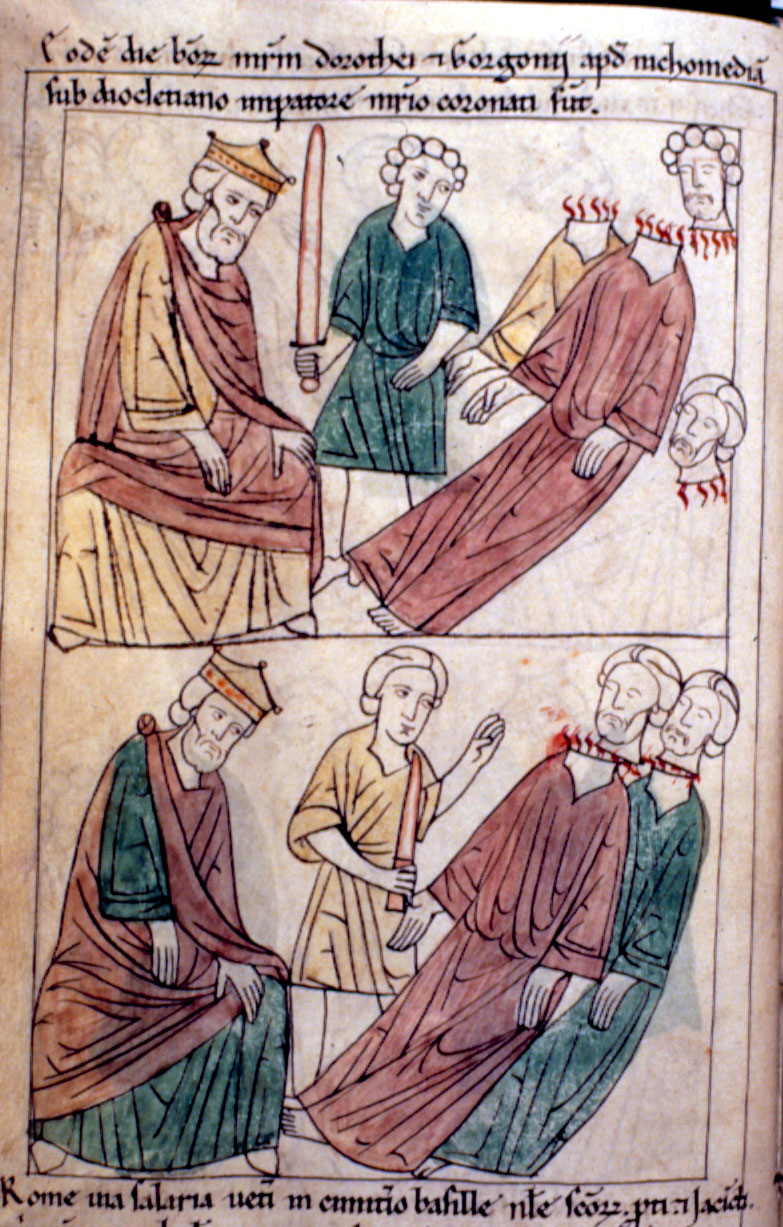 Eodē die bōꝝ mr̄m dorothei ⁊ Gorgonij apđ nichomediā
sub diocletiano impatore mr̄io coronati sūt.
Rome uia salaria ueti in cimit̄io basille nl̄e sc̄oꝝ. pti ⁊ Jacict.